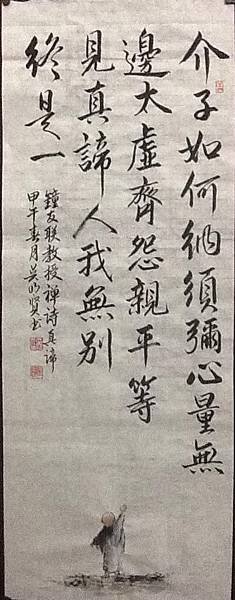 介子如何納須彌心量無
邊太虛齊怨親平等
見真諦人我無別
終是一
鐘友聯教授禪詩真諦
甲午春月吳明賢書